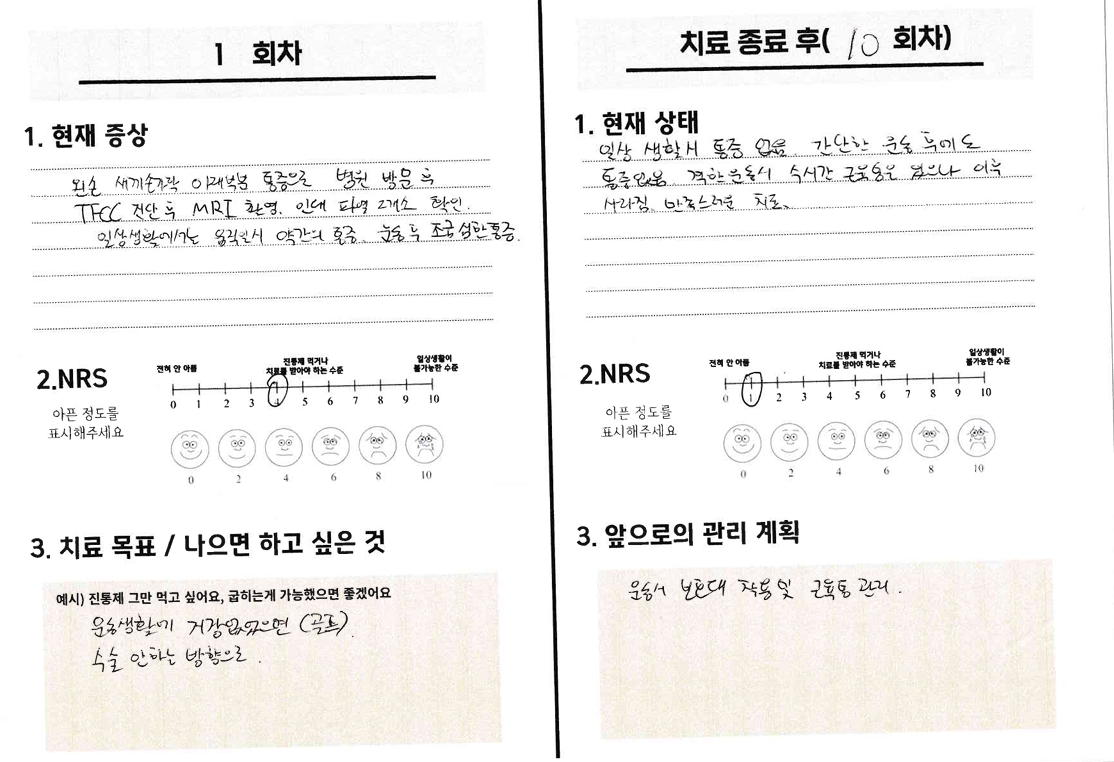 1 회차
1. 현재 증상
왼손 새끼손가락 아래부분 통증으로 병원 방문 후
TFCC 진단 후 MRI 촬영. 인대 파열 2개소 확인.
일상생활에서는 움직일시 약간의 통증. 운동 후 조금 심한 통증.
2.NRS
아픈 정도를
표시해주세요
전혀 안 아픔
진통제 먹거나
치료를 받아야 하는 수준
일상생활이
불가능한 수준
0 1 2 3 4 5 6 7 8 9 10
0 2 4 6 8 10
3. 치료 목표 / 나으면 하고 싶은 것
예시) 진통제 그만 먹고 싶어요, 굽히는게 가능했으면 좋겠어요
운동생활에 지장없었으면 (골프).
수술 안하는 방향으로.
치료 종료 후( 10 회차)
1. 현재 상태
일상 생활시 통증 없음. 간단한 운동 후에도
통증없음. 격한운동시 수시간 근육통은 있으나 이후
사라짐. 만족스러운 치료.
2.NRS
아픈 정도를
표시해주세요
전혀 안 아픔
진통제 먹거나
치료를 받아야 하는 수준
일상생활이
불가능한 수준
0 1 2 3 4 5 6 7 8 9 10
0 2 4 6 8 10
3. 앞으로의 관리 계획
운동시 보호대 착용 및 근육통 관리.